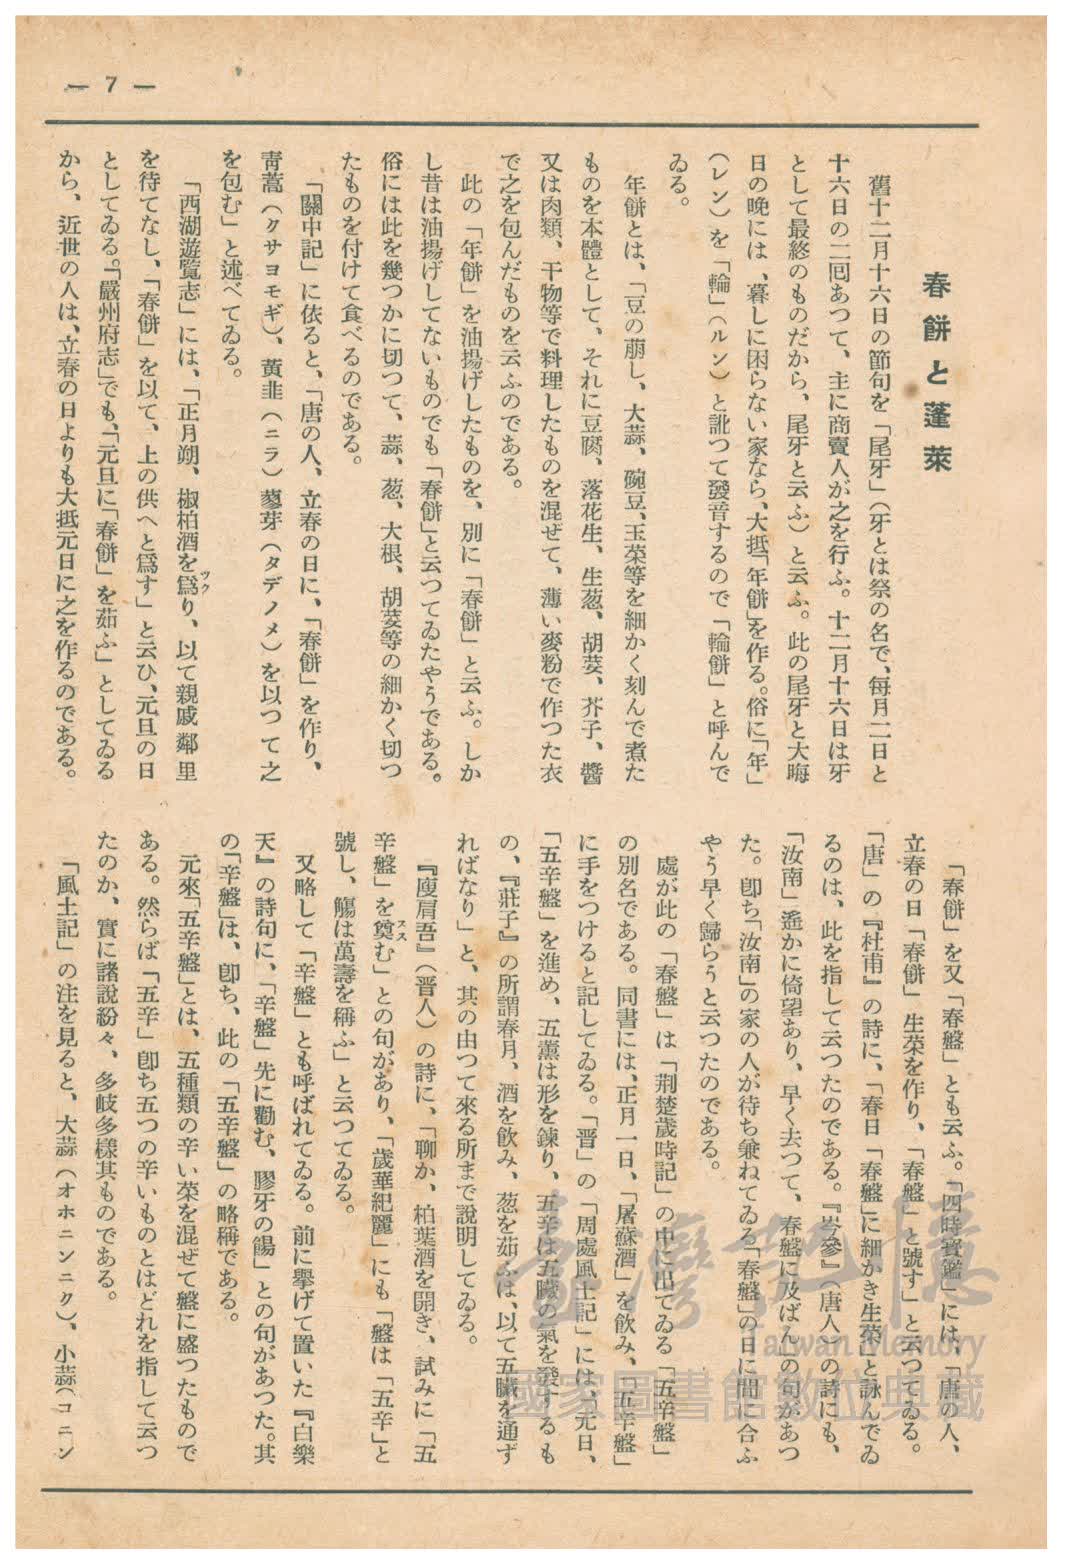 — 7 —
春餅と蓬萊
舊十二月十六日の節句を「尾牙」（牙とは祭の名で、每月二日と
十六日の二囘あつて、主に商賣人が之を行ふ。十二月十六日は牙
として最終のものだから、尾牙と云ふ）と云ふ。此の尾牙と大晦
日の晩には、暮しに困らない家なら、大抵「年餅」を作る。俗に「年」
（レン）を「輪」（ルン）と訛つて發音するので「輪餅」と呼んで
ゐる。
年餅とは、「豆の萠し、大蒜、豌豆、玉菜等を細かく刻んで煮た
ものを本體として、それに豆腐、落花生、生葱、胡荽、芥子、醬
又は肉類、干物等で料理したものを混ぜて、薄い麥粉で作つた衣
で之を包んだものを云ふのである。
此の「年餅」を油揚げしたものを、別に「春餅」と云ふ。しか
し昔は油揚げしてないものでも「春餅」と云つてゐたやうである。
俗には此を幾つかに切つて、蒜、葱、大根、胡荽等の細かく切つ
たものを付けて食べるのである。
「關中記」に依ると、「唐の人、立春の日に、「春餅」を作り、
靑蒿（クサヨモギ）、黃韭（ニラ）蓼芽（タデノメ）を以つて之
を包む」と述べてゐる。
「西湖遊覽志」には、「正月朔、椒柏酒を爲ツクり、以て親戚鄰里
を待てなし、「春餅」を以て、上の供へと爲す」と云ひ、元旦の日
としてゐる。「嚴州府志」でも、「元旦に「春餅」を茹ふ」としてゐる
から、近世の人は、立春の日よりも大抵元日に之を作るのである。
「春餅」を又「春盤」とも云ふ。「四時寶鑑」には、「唐の人、
立春の日「春餅」生菜を作り、「春盤」と號す」と云つてゐる。
「唐」の『杜甫』の詩に、「春日「春盤」に細かき生菜」と詠んでゐ
るのは、此を指して云つたのである。『岑參』（唐人）の詩にも、
「汝南」遙かに倚望あり、早く去つて、春盤に及ばん」の句があつ
た。卽ち「汝南」の家の人が待ち兼ねてゐる「春盤」の日に間に合ふ
やう早く歸らうと云つたのである。
處が此の「春盤」は「荆楚歲時記」の中に出てゐる「五辛盤」
の別名である。同書には、正月一日、「屠蘇酒」を飮み、「五辛盤」
に手をつけると記してゐる。「晋」の「周處風土記」には、「元日、
「五辛盤」を進め、五薰は形を鍊り、五辛は五臟の氣を發するも
の、『莊子』の所謂春月、酒を飮み、葱を茹ふは、以て五臟を通ず
ればなり」と、其の由つて來る所まで說明してゐる。
『廋肩吾』（晋人）の詩に、「聊か、柏葉酒を開き、試みに「五
辛盤」を奠ススむ」との句があり、「歲華紀麗」にも「盤は「五辛」と
號し、觴は萬壽を稱ふ」と云つてゐる。
又略して「辛盤」とも呼ばれてゐる。前に擧げて置いた『白樂
天』の詩句に、「辛盤」先に勸む、膠牙の餳」との句があつた。其
の「辛盤」は、卽ち、此の「五辛盤」の略稱である。
元來「五辛盤」とは、五種類の辛い菜を混ぜて盤に盛つたもので
ある。然らば「五辛」卽ち五つの辛いものとはどれを指して云つ
たのか、實に諸說紛々、多岐多樣其ものである。
「風土記」の注を見ると、大蒜（オホニンニク）、小蒜（コニン
臺灣記憶
Taiwan Memory
國家圖書館數位典藏